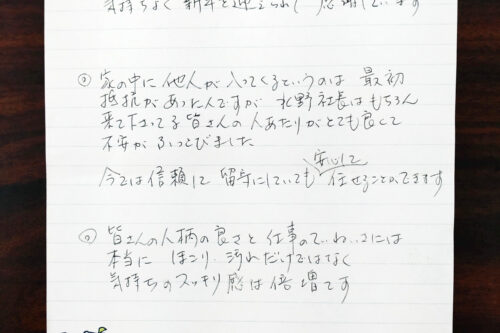 気持ちよく 新年を迎えられ 感謝しています
② 家の中に 他人が 入ってくるというのは 最初
抵抗があったんですが 水野社長はもちろん
来て下さってる 皆さんの 人あたりがとても良くて
不安が ふっとびました
安心して
今では信頼して 留守にしていても 任せることができます
③ 皆さんの人柄の良さと 仕事のていねいさには
本当に ほこり、汚れだけではなく
気持ちのスッキリ感は倍増です